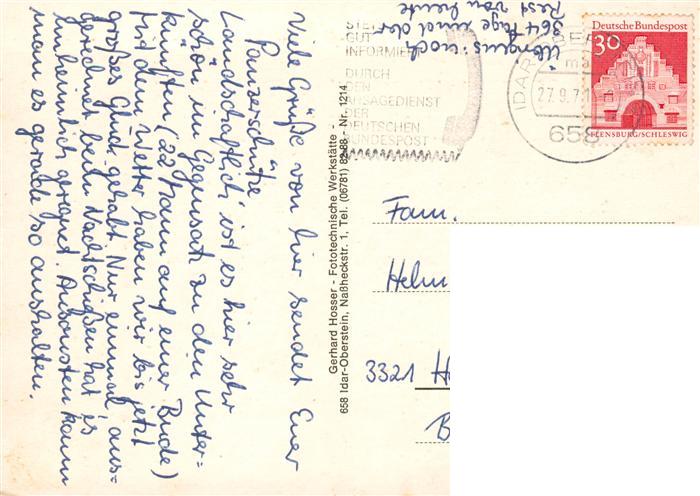 Viele Grüße von hier sendet Euer
Panzerschütze
Landschaftlich ist es hier sehr
schön im Gegensatz zu den Unter=
künften (22 Mann auf einer Bude)
Mit dem Wetter haben wir bis jetzt
großes Glück gehabt. Nur einmal, aus=
gerechnet beim Nachtschießen hat es
unheimlich geregnet. Ansonsten kann
man es gerade so aushalten.
Übrigens: noch
364 Tage und der
Rest von heute
GUT
INFORMIE
DURCH
DEN
ANSAGEDIENST
DER
DEUTSCHEN
BUNDESPOST
IDAR
27.9.7
658
Deutsche Bundespost
30
FLENSBURG/SCHLESWIG
Gerhard Hosser - Fototechnische Werkstätte -
658 Idar-Oberstein, Naßheckstr. 1, Tel. (06781) 82 88 - Nr. 1214
Fam.
Helm
3321 H
B